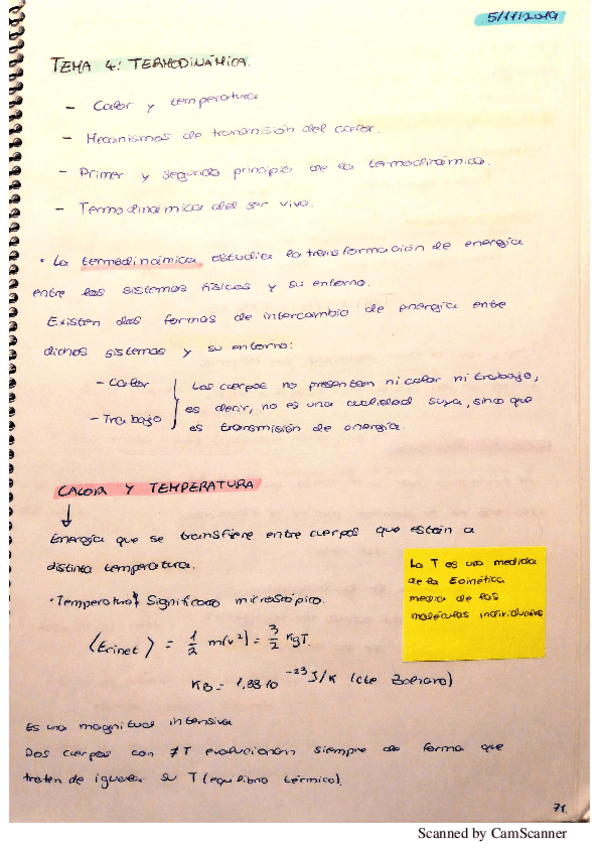 5/11/2019
TEMA 4: TERMODINÁMICA.
- Calor y temperatura
- Mecanismos de transmisión del calor.
- Primer y segundo principio de la termodinámica.
- Termodinámica del ser vivo.
· La termodinámica estudia la transformación de energía
entre los sistemas físicos y su entorno.
Existen dos formas de intercambio de energía entre
dichos sistemas y su entorno:
- Calor
- Trabajo
Los cuerpos no presentan ni calor ni trabajo,
es decir, no es una cualidad suya, sino que
es transmisión de energía.
CALOR Y TEMPERATURA
↓
Energía que se transfiere entre cuerpos que están a
distinta temperatura.
La T es una medida
de la Ecinética
media de las
moléculas individuales
· Temperatura Significado microscópico.
⟨Ecinet⟩ = 1/2 m⟨v²⟩ = 3/2 KBT.
KB = 1,38·10⁻²³ J/K (cte Bolzmann)
Es una magnitud intensiva
Dos cuerpos con ≠T evolucionan siempre de forma que
traten de igualar su T (equilibrio térmico).
71.
Scanned by CamScanner